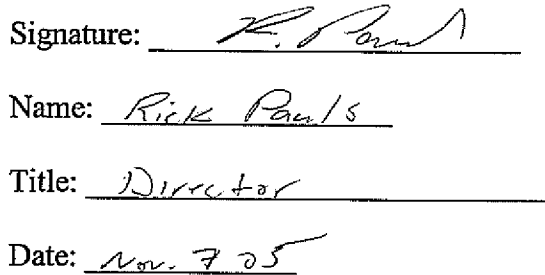 Signature: R. Pauls
Name: Rick Pauls
Title: Director
Date: Nov. 7 05